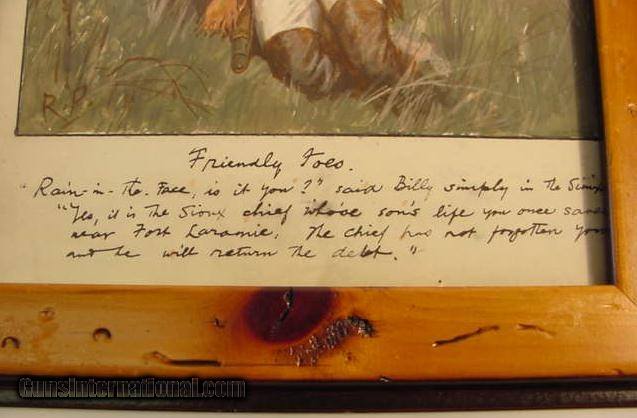 R P
Friendly Foes.
"Rain-in-the-Face, is it you?" said Billy simply in the Sioux
"Yes, it is the Sioux chief whose son's life you once save
near Fort Laramie. The Chief has not forgotten you
and he will return the debt."
GunsInternational.com